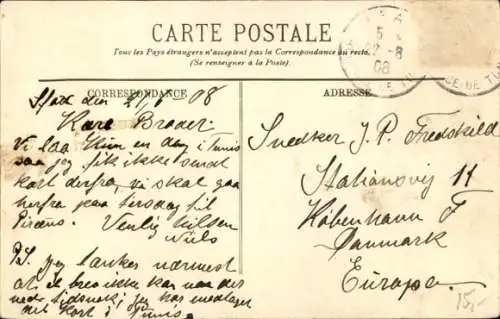 CARTE POSTALE
Tous les Pays étrangers n'acceptent pas la Correspondance au recto.
(Se renseigner à la Poste).
CORRESPONDANCE
ADRESSE
5
22-8
08
DE TU
DE TUN
den 21/8 - 08
Kære Broder.
Vi laa kun en dag i Tunis
saa jeg fik ikke sendt
kort derfra, vi skal gaa
herfra paa Tirsdag til
Piræus. Venlig hilsen
Niels
P.S. jeg tænker nærmest
at et brev ikke kan naa der
ned tidsnok, jeg har modtaget
dit kort i Tunis.
Snedker J. P. Fredskild
Stationsvej 11
København F
Danmark
Europa.
15,-